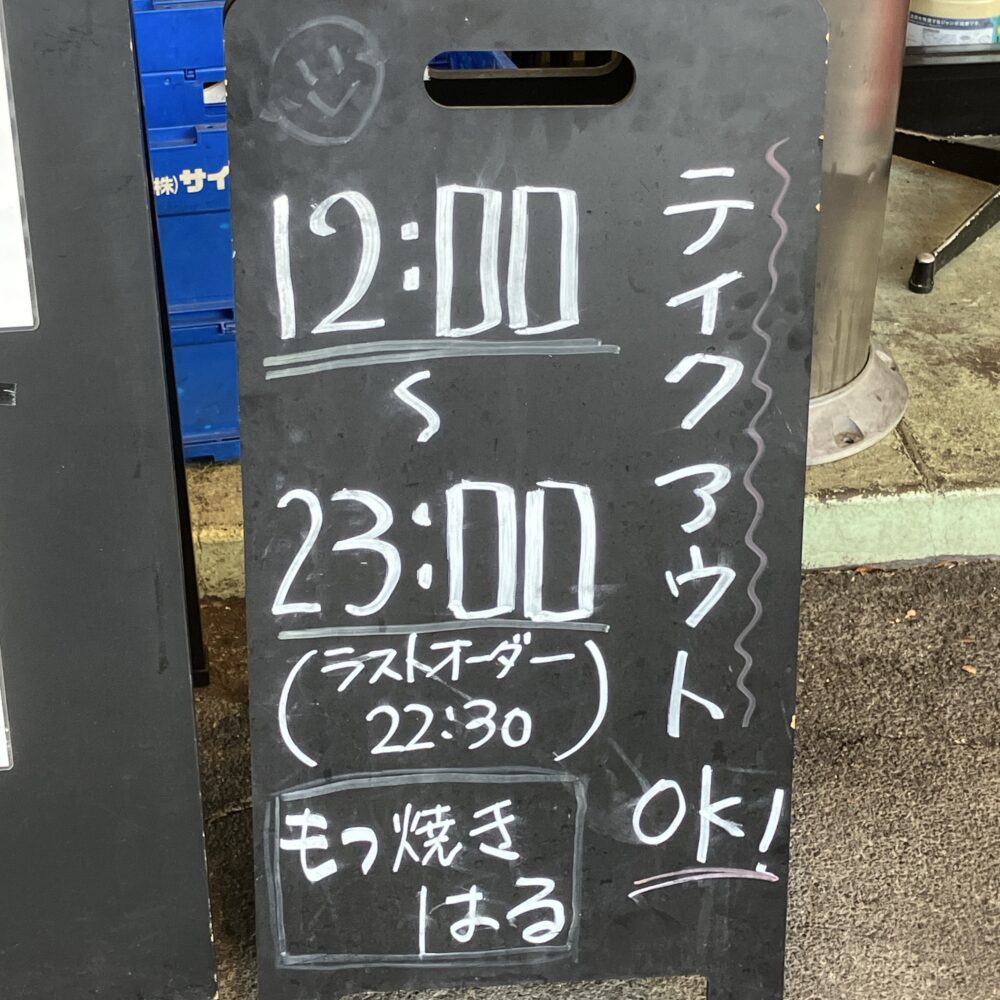 12:00
〜
23:00
(ラストオーダー
22:30)
テイクアウト
OK!
もつ焼き
はる
(株)サイ